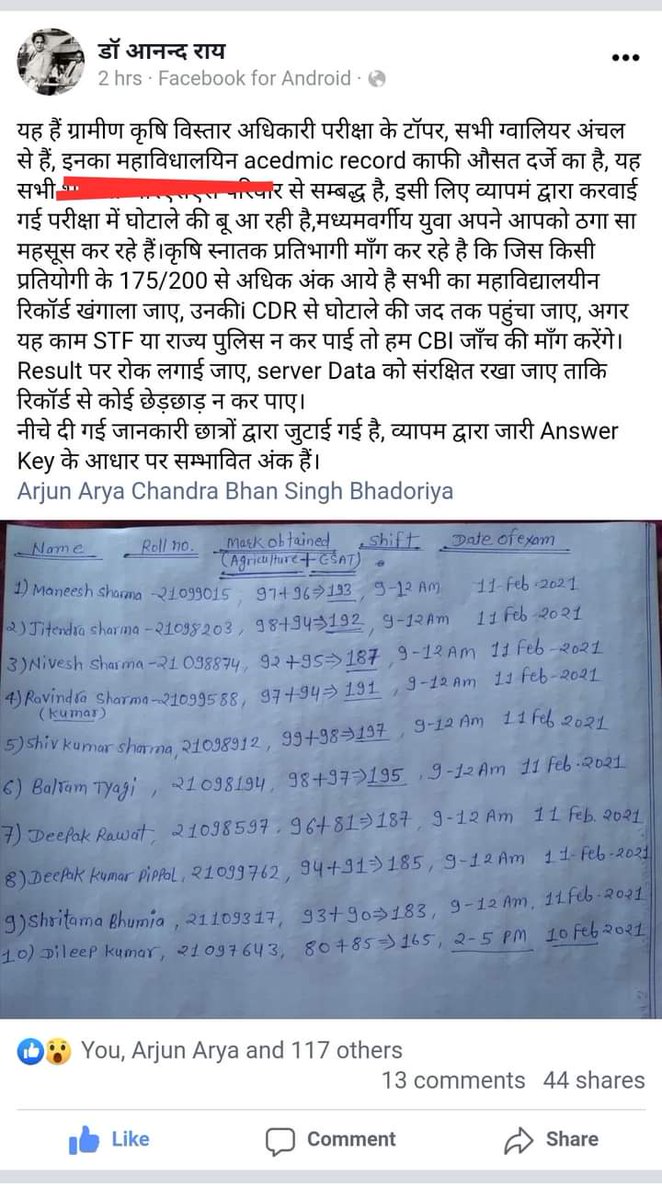 डॉ आनन्द राय
2 hrs · Facebook for Android ·
यह हैं ग्रामीण कृषि विस्तार अधिकारी परीक्षा के टॉपर, सभी ग्वालियर अंचल
से हैं, इनका महाविधालयिन acedmic record काफी औसत दर्जे का है, यह
सभी से सम्बद्ध है, इसी लिए व्यापमं द्वारा करवाई
गई परीक्षा में घोटाले की बू आ रही है,मध्यमवर्गीय युवा अपने आपको ठगा सा
महसूस कर रहे हैं।कृषि स्नातक प्रतिभागी माँग कर रहे है कि जिस किसी
प्रतियोगी के 175/200 से अधिक अंक आये है सभी का महाविद्यालयीन
रिकॉर्ड खंगाला जाए, उनकीi CDR से घोटाले की जद तक पहुंचा जाए, अगर
यह काम STF या राज्य पुलिस न कर पाई तो हम CBI जाँच की माँग करेंगे।
Result पर रोक लगाई जाए, server Data को संरक्षित रखा जाए ताकि
रिकॉर्ड से कोई छेड़छाड़ न कर पाए।
नीचे दी गई जानकारी छात्रों द्वारा जुटाई गई है, व्यापम द्वारा जारी Answer
Key के आधार पर सम्भावित अंक हैं।
Arjun Arya Chandra Bhan Singh Bhadoriya
Name Roll no. Mask obtained shift Date of exam
(Agriculture + GSAT)
1) Maneesh sharma -21099015, 97+96⇒193, 9-12 Am 11-feb-2021
2) Jitendra sharma -21098203, 98+94⇒192, 9-12Am 11 Feb-2021
3) Nivesh Sharma -21098874, 92+95⇒187, 9-12 AM 11 Feb-2021
4) Ravindra Sharma -21099588, 97+94⇒191, 9-12 Am 11 feb-2021
(kumar)
5) Shiv kumar sharma, 21098912, 99+98⇒197, 9-12 Am 11 feb 2021
6) Balram Tyagi, 21098194, 98+97⇒195, 9-12 Am 11 feb-2021
7) Deepak Rawat, 21098597, 96+81⇒187, 9-12 Am 11 feb. 2021
8) Deepak Kumar Pippal, 21099762, 94+91⇒185, 9-12 Am 11-feb-2021
9) Shritama Bhumia, 21109317, 93+90⇒183, 9-12 Am, 11 feb-2021
10) Dileep kumar, 21097643, 80+85⇒165, 2-5 PM 10 feb 2021
You, Arjun Arya and 117 others
13 comments 44 shares
Like Comment Share